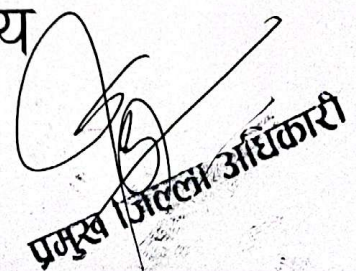 य
प्रमुख जिल्ला अधिकारी